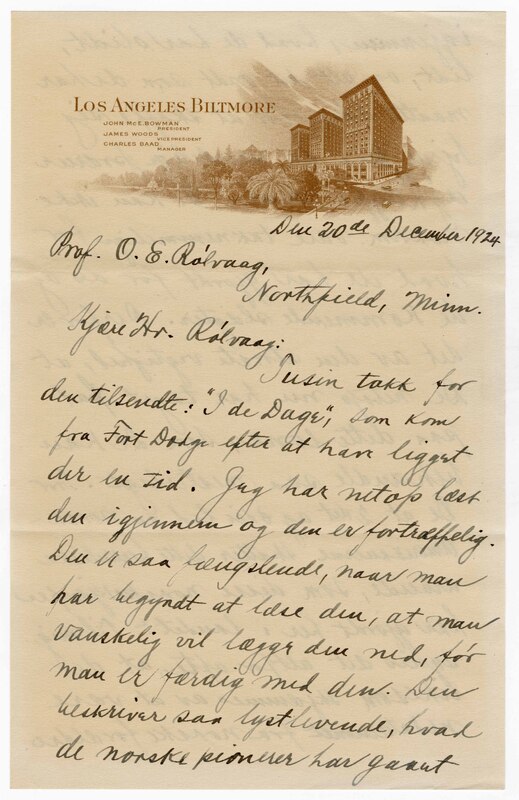 LOS ANGELES BILTMORE
JOHN McE. BOWMAN
PRESIDENT
JAMES WOODS
VICE PRESIDENT
CHARLES BAAD
MANAGER
Den 20de December 1924
Prof. O. E. Rölvaag,
Northfield, Minn.
Kjære Hr. Rölvaag:
Tusin takk for
den tilsendte: "I de Dage", som kom
fra Fort Dodge efter at have ligget
der en tid. Jeg har netop læst
den igjennem og den er fortræffelig.
Den er saa fængslende, naar man
har begyndt at læse den, at man
vanskelig vil lægge den ned, før
man er færdig med den. Den
beskriver saa lystlevende, hvad
de norske pionerer har gaaet